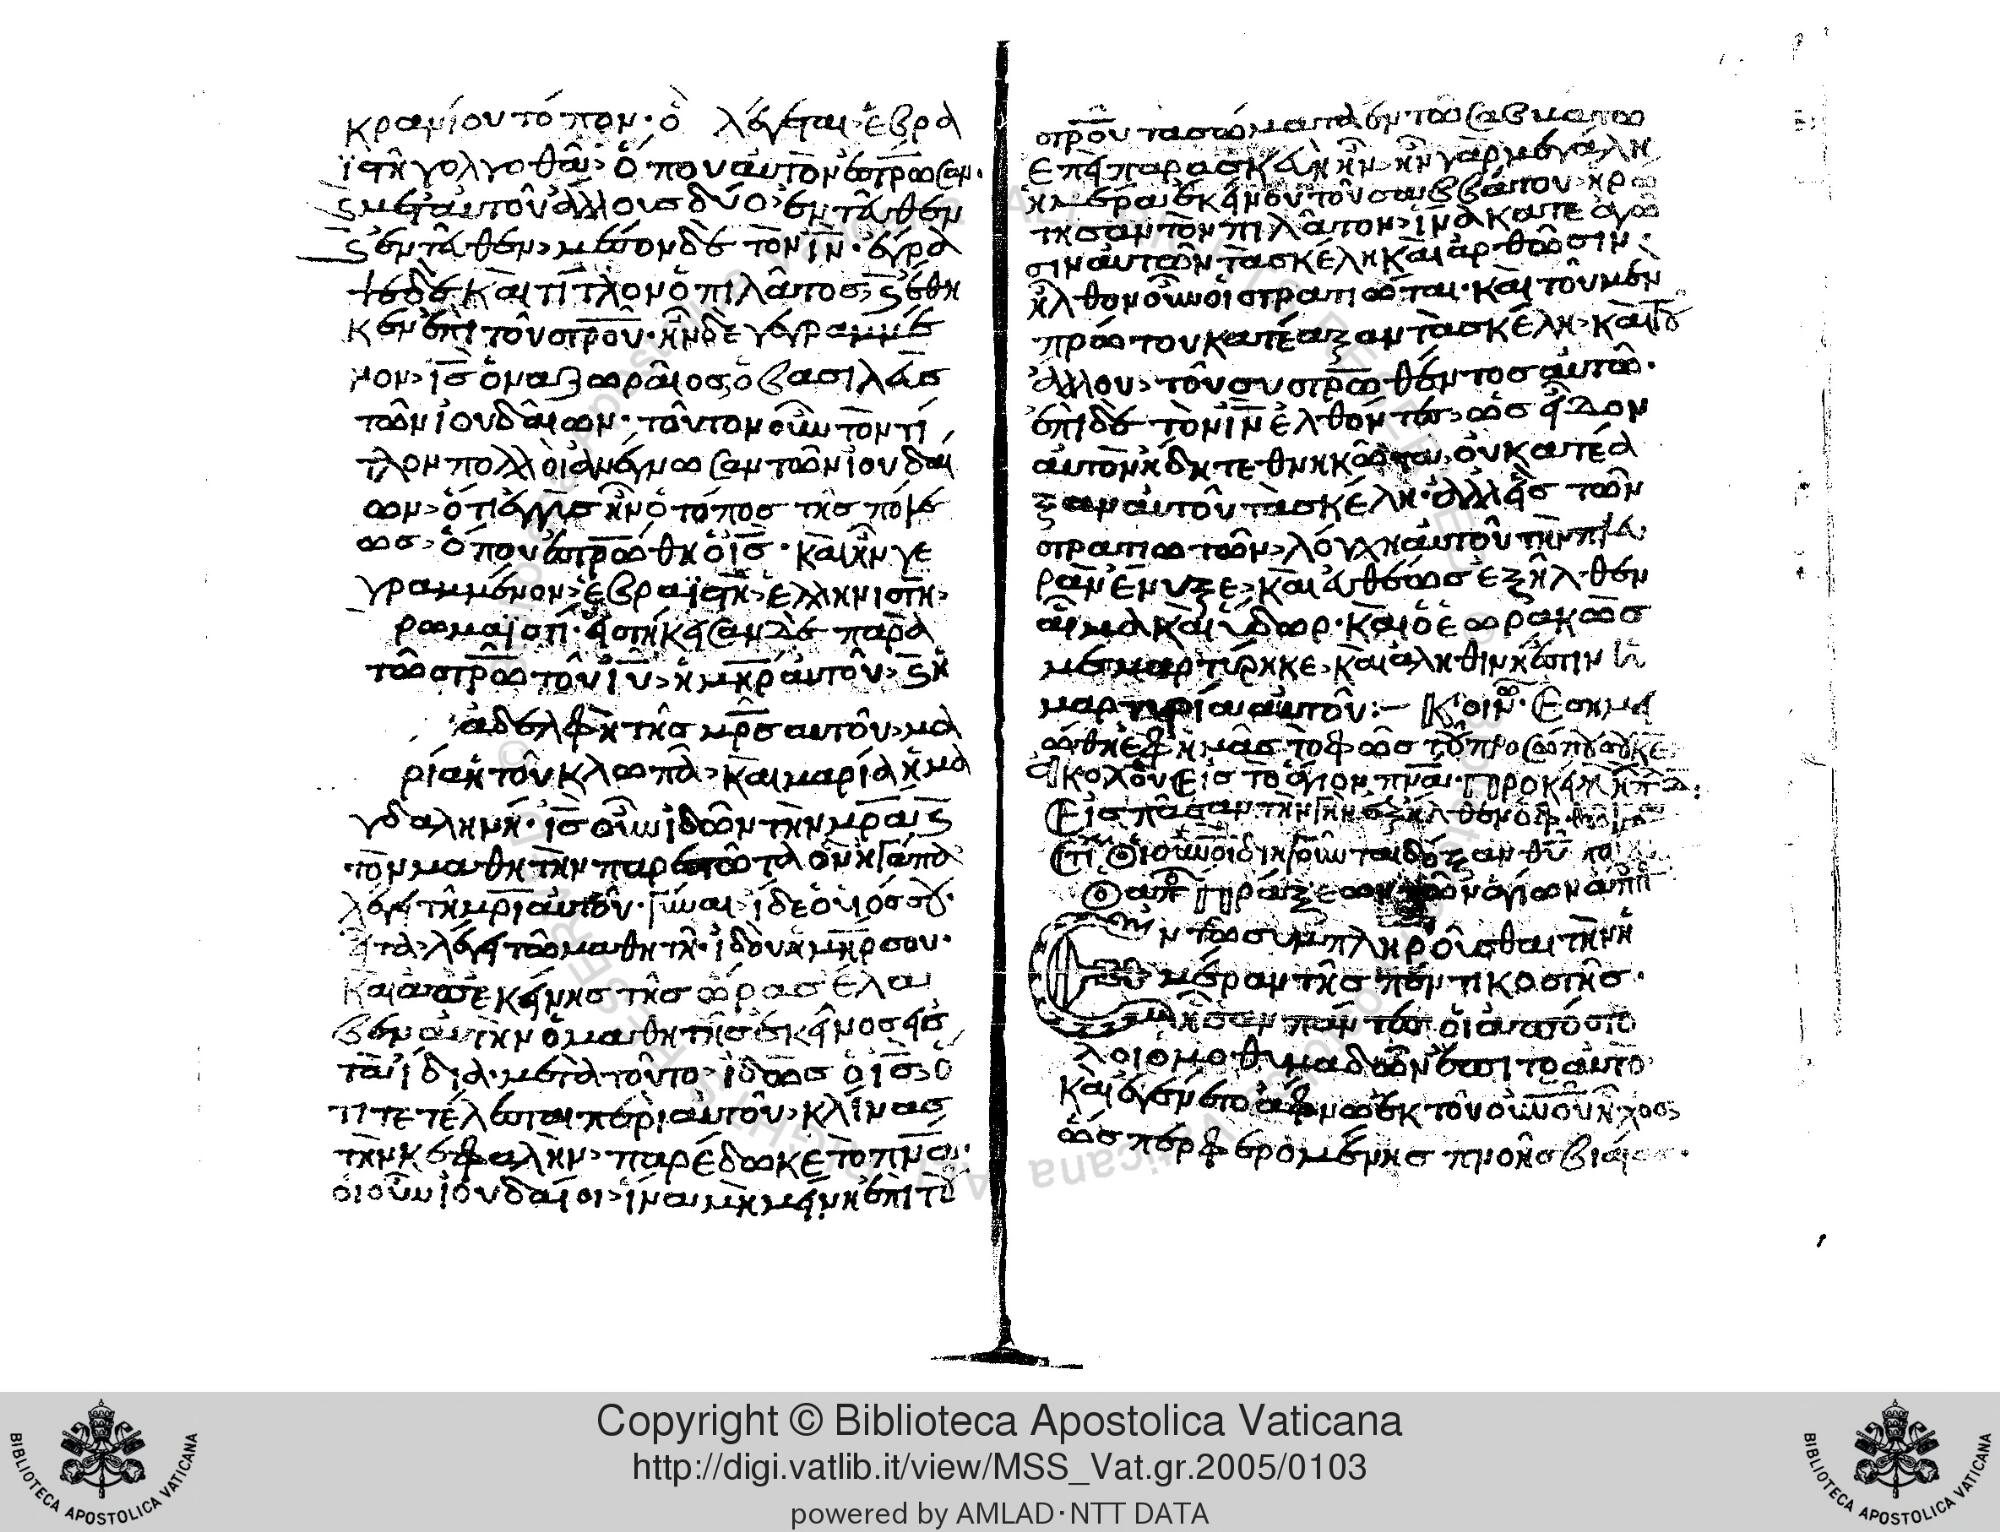 κρανίου τόπον· ὃ λέγεται ἑβρα
ϊστὴ γολγοθᾶ· ὅπου αὐτὸν ἐστρωσαν·
ϛ μετ αὐτοῦ ἄλλους δύο ἐντεῦθεν
ϛ ἐντεῦθεν, μέσον δὲ τὸν ιν· ἔγρα
ψε δὲ καὶ τίτλον ὁ πιλᾶτος, ϛ ἔθη
κεν ἐπὶ τοῦ στρου· ἦν δὲ γεγραμμέ
νον, ις ὁ ναζωραῖος ὁ βασιλεὺς
τῶν ἰουδαίων· τοῦτον οὖν τὸν τί
τλον πολλοὶ ἀνέγνωσαν τῶν ἰουδαί
ων, ὅτι ἐγγὺς ἦν ὁ τόπος τῆς πόλε
ως, ὅπου ἐστρώθη ὁ ις· καὶ ἦν γε
γραμμένον, ἑβραϊστὴ, ἑλληνιστὴ,
ρωμαϊστί· εἱστήκεισαν δὲ παρὰ
τῶ στρω τοῦ ιυ, ἡ μηρ αὐτοῦ, ϛ ἡ
ἀδελφὴ τῆς μρς αὐτοῦ, μα
ρία ἡ τοῦ κλωπᾶ, καὶ μαρία ἡ μα
γδαληνή· ις οὖν ἰδὼν τὴν μρα ϛ
τὸν μαθητὴν παρεστῶτα ὃν ἠγάπα
λέγει τῆ μρι αὐτοῦ· γύναι, ἴδε ὁ υἱός σου·
εἶτα λέγει τῶ μαθητῆ· ἰδοὺ ἡ μηρ σου·
καὶ ἀπ ἐκείνης τῆς ὥρας ἔλα
βεν αὐτὴν ὁ μαθητὴς ἐκεῖνος εἰς
τὰ ἴδια· μετὰ τοῦτο, ἰδὼς ὁ ις, ὅ
τι τετέλεσται περὶ αὐτοῦ, κλίνας
τὴν κεφαλὴν, παρέδωκε τὸ πνα·
οἱ οὖν ἰουδαῖοι, ἵνα μὴ μείνη ἐπὶ τοῦ
στροῦ τὰ σώματα ἐν τῶ σαβμάτω
ἐπεὶ παρασκευὴ ἦν, ἦν γὰρ μεγάλη
ἡμέρα ἐκείνου τοῦ σαββάτου, ἠρώ
τησαν τὸν πιλᾶτον, ἵνα κατεαγῶ
σιν αὐτῶν τὰ σκέλη καὶ ἀρθῶσιν·
ἦλθον οὖν οἱ στρατιῶται· καὶ τοῦ μὲν
πρώτου κατέαξαν τὰ σκέλη, καὶ τοῦ
ἄλλου, τοῦ συστρωθέντος αὐτῶ·
ἐπὶ δὲ τὸν ιν ἐλθόντες, ὡς εἶδον
αὐτὸν ἤδη τεθνηκῶτα, οὐ κατέα
ξαν αὐτοῦ τὰ σκέλη· ἀλλ εἷς τῶν
στρατιωτῶν, λόγχη αὐτοῦ τὴν πλευ
ρὰν ἔνυξε, καὶ εὐθέως ἐξῆλθεν
αἷμα καὶ ὕδωρ· καὶ ὁ ἑωρακὼς
μεμαρτύρηκε, καὶ ἀληθινή ἐστιν ἡ
μαρτυρία αὐτοῦ:— Κοιν· Ἐσημει
ώθη ἐφ ἡμᾶς τὸ φῶς τοῦ προσώπου σου κε
Εἰς πᾶσαν τὴν γῆν ἐξῆλθεν ὁ φθόγγος
Πράξεων τῶν ἁγίων ἀποστ
Ἐν τῶ συμπληροῦσθαι τὴν ἡ
μέραν τῆς πεντικοστῆς·
ἦσαν πάντες οἱ ἀπόστο
λοι ὁμοθυμαδὸν ἐπὶ τὸ αὐτό·
καὶ ἐγένετο ἄφνω ἐκ τοῦ οὐνοῦ ἦχος,
ὥσπερ φερομένης πνοῆς βιαίας·
Copyright © Biblioteca Apostolica Vaticana
http://digi.vatlib.it/view/MSS_Vat.gr.2005/0103
powered by AMLAD·NTT DATA
BIBLIOTECA APOSTOLICA VATICANA
BIBLIOTECA APOSTOLICA VATICANA